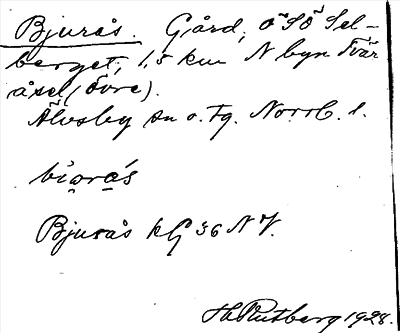 Bjurås. Gård, O SO Sel-
berget, 1,5 km N byn Tvär
åsel (övre).
Älvsby sn o. Tg. Norrb. l.
biarás
Bjurås kG 36 NV.
H. Rutberg 1928.